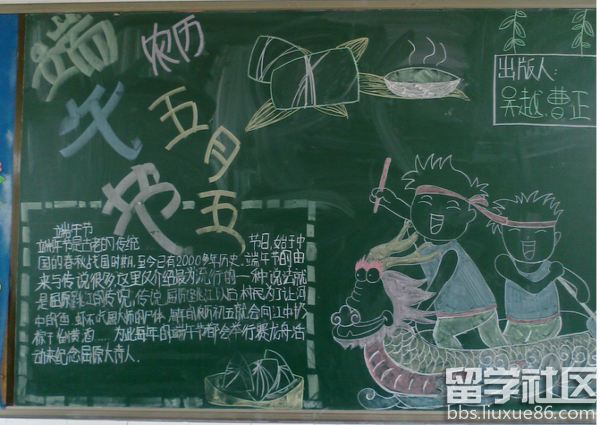 端
午
节
农历
五
月
五
出版人:
吴越,曹正
端午节
端午节是古老的传统 节日,始于中
国的春秋战国时期,至今已有2000多年历史.端午节的由
来与传说很多,这里仅介绍最为流行的一种说法就
是屈原跳江的传说,传说屈原跳江以后,村民为了让河
中的
为此每年的端午节都会举行赛龙舟活
动来纪念屈原大诗人.
留学社区
bbs.liuxue86.com